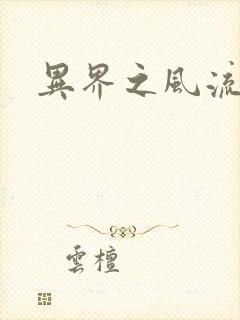 異界之風流
雲檀